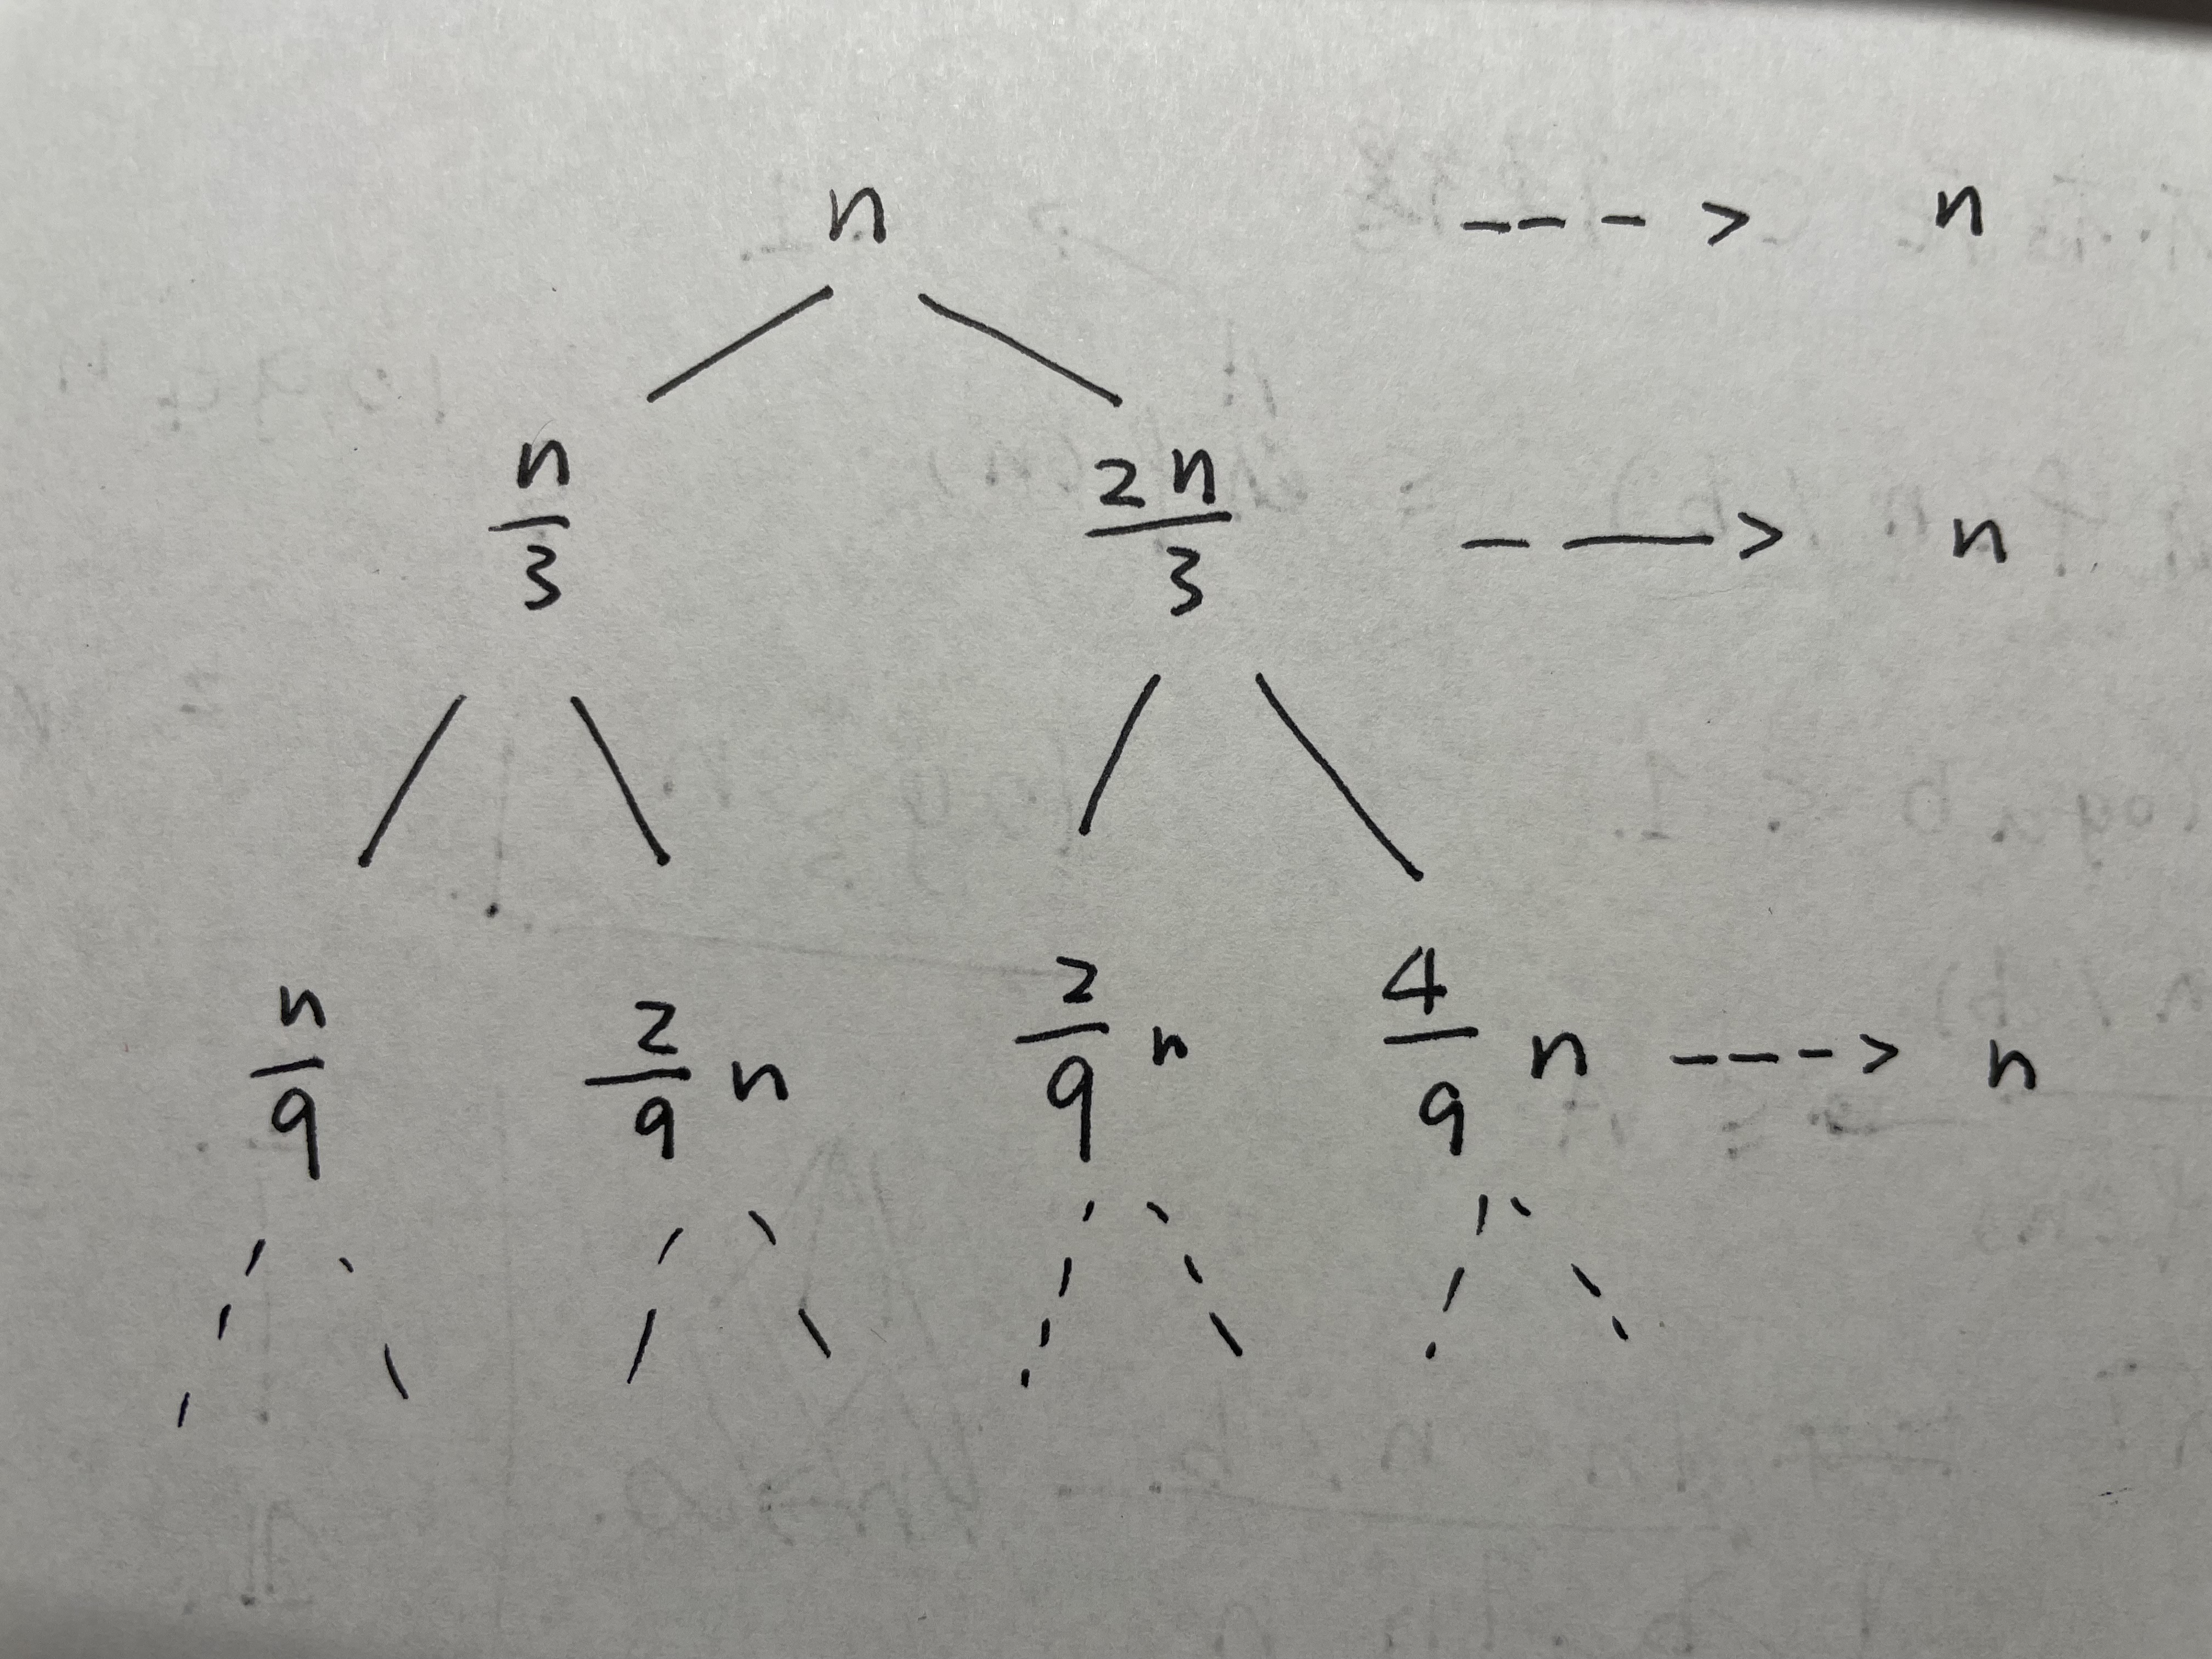 n ----> n
n/3 2n/3 ----> n
n/9 2/9 n 2/9 n 4/9 n ----> n